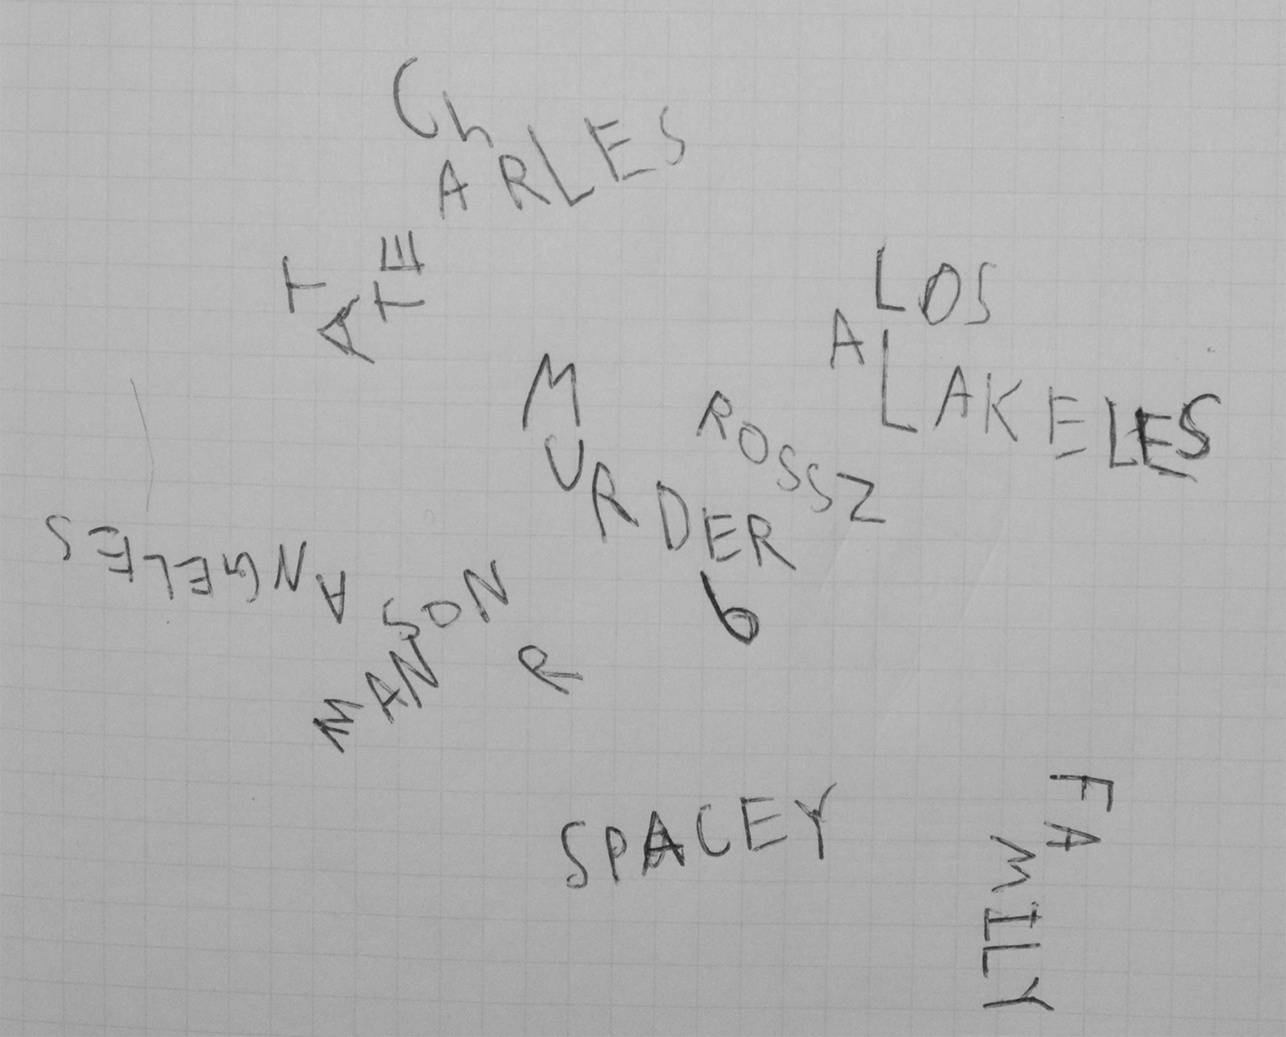 Ch
ARLES
TATE
LOS
A LAKELES
MURDER
ROSSZ
6
ANGELES
MANSON
R
SPACEY
FAMILY